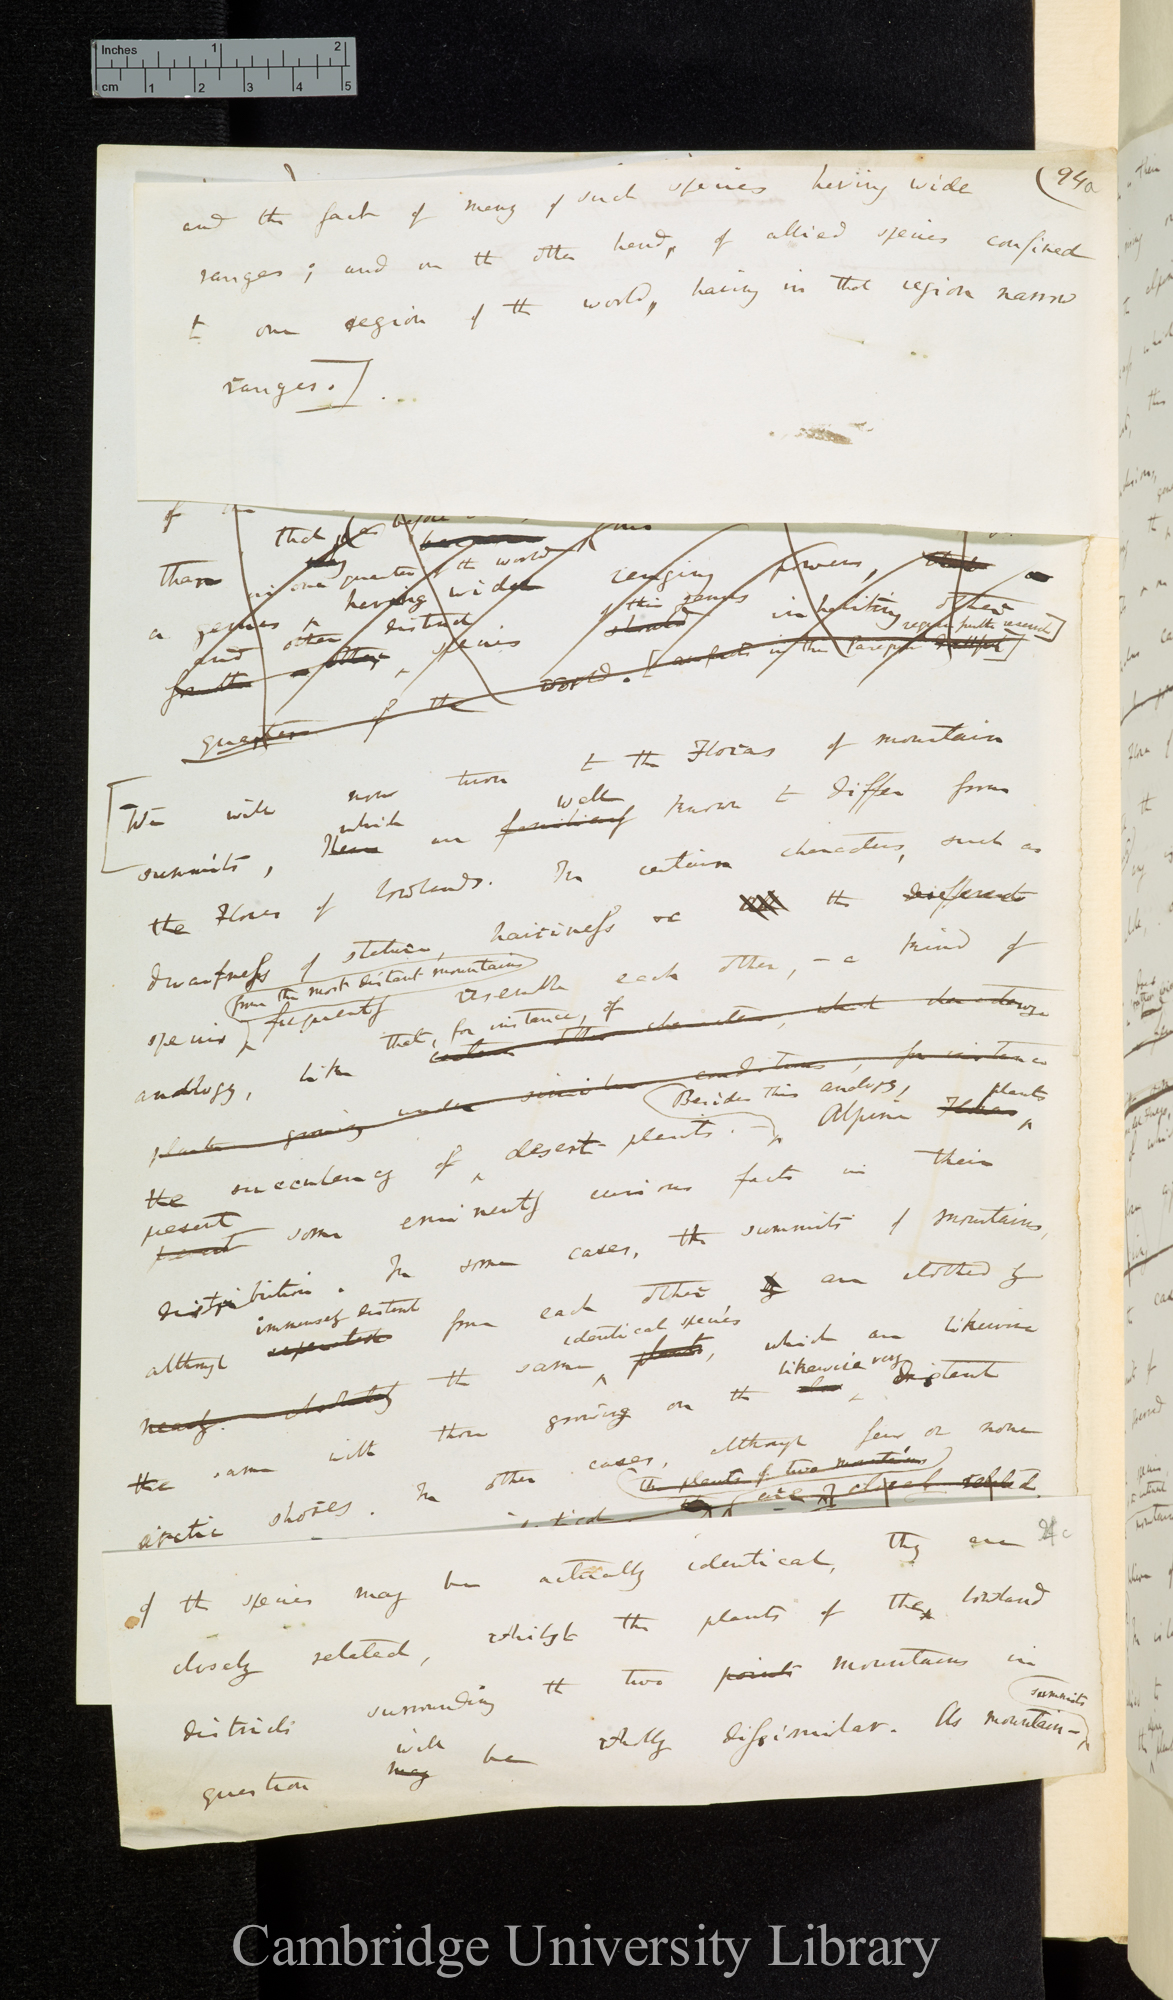 Inches 1 2
cm 1 2 3 4 5
(94a
and the fact of many of such species having wide
ranges; and on the other hand, of allied species confined
to one region of the world, having in that region narrow
ranges.]
that has before
because
in one quarter of the world
than having wider ranging powers, that a
a genus
this genus
and other distinct species should inhabiting other
for the other
regions
quarters of the world.
[We will now turn to the Floras of mountain
which well
summits, These are familiarly known to differ from
the Floras of lowlands. In certain characters, such as
dwarfness of stature, hairiness &c the different
(from the most distant mountains)
species frequently resemble each other, – a kind of
analogy, like that, for instance, of
certain other characters, which characterize
plants growing under similar conditions, for instance
(Besides this analogy, plants
the succulency of desert plants. Alpine Floras,
present
present some eminently curious facts in their
distribution. In some cases, the summits of mountains,
immensely distant
although separated from each other, by are clothed by
identical species
nearly absolutely the same plants, which are likewise
likewise very
the same with those growing on the also distant
arctic shores. In other cases, although few or none
(the plants of two mountains)
are closely related
of the species may be actually identical, they are
closely related, whilst the plants of the lowland
districts surrounding the two points mountains in
will (summits
question may be wholly dissimilar. As mountain-
Cambridge University Library